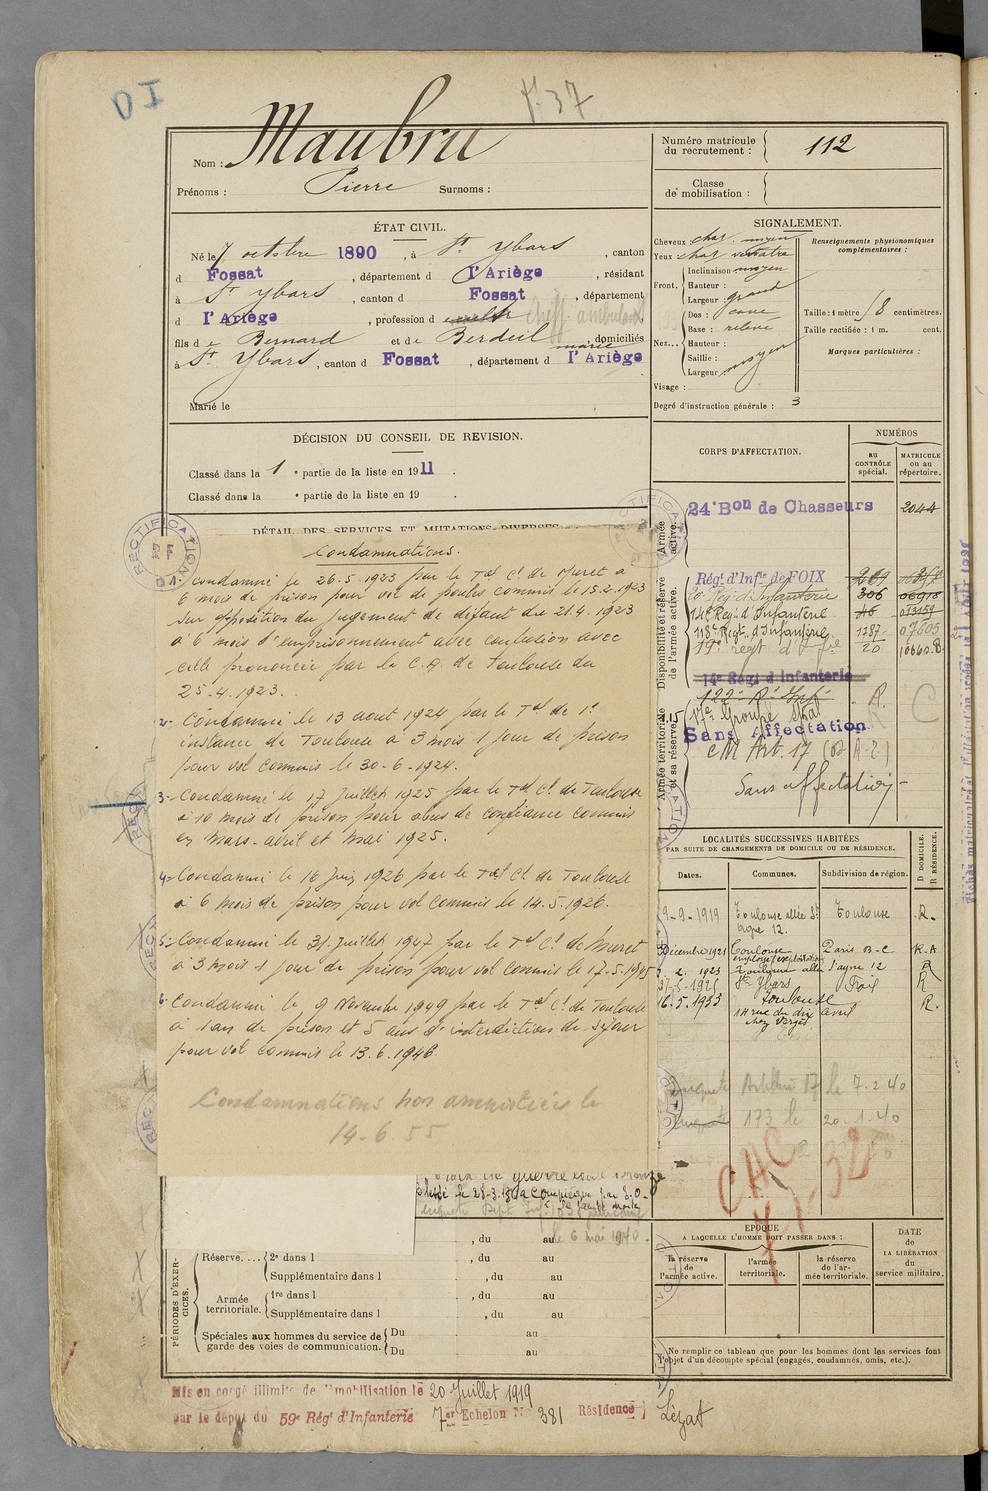 OI
F.37
Nom : Maubru
Prénoms : Pierre Surnoms :
Numéro matricule
du recrutement : 112
Classe
de mobilisation :
ÉTAT CIVIL.
Né le 7 octobre 1890, à St Ybars, canton
d Fossat, département d l'Ariège, résidant
à St Ybars, canton d Fossat, département
d l'Ariège, profession d
fils d e Bernard et d e Berdeil Marie, domiciliés
à St Ybars, canton d Fossat, département d l'Ariège
Marié le
SIGNALEMENT.
Cheveux chat. moyen
Yeux chat verdatre
Front. Inclinaison moyen
Hauteur :
Largeur : grand
Nez... Dos : cave
Base : relevé
Hauteur :
Saillie :
Largeur moyen
Visage :
Degré d'instruction générale : 3
Renseignements physionomiques
complémentaires :
Taille : 1 mètre 58 centimètres.
Taille rectifiée : 1 m. cent.
Marques particulières :
DÉCISION DU CONSEIL DE REVISION.
Classé dans la 1 e partie de la liste en 1911.
Classé dans la e partie de la liste en 19 .
DÉTAIL DES SERVICES ET MUTATIONS DIVERSES
RECTIFICATION
Condamnations.
1.- Condamné le 26.5.1923 par le Tal Cl de Muret à
6 mois de prison pour vol de poules commis le 15.2.1923
sur opposition du jugement de défaut du 21.4.1923
à 6 mois d'emprisonnement avec confusion avec
celle prononcée par la C.A. de Toulouse du
25.4.1923.
2- Condamné le 13 aout 1924 par le Tal de 1e
instance de Toulouse à 3 mois 1 jour de prison
pour vol commis le 30-6-1924.
3- Condamné le 17 Juillet 1925 par le Tal Cl de Toulouse
à 10 mois de prison pour abus de confiance commis
en mars-avril et mai 1925.
4- Condamné le 16 Juin 1926 par le Tal Cl de Toulouse
à 6 mois de prison pour vol commis le 14.5.1926.
5- Condamné le 31 Juillet 1947 par le Tal Cl de Muret
à 3 mois 1 jour de prison pour vol commis le 17-5-1945
6- Condamné le 9 Novembre 1949 par le Tal Cl de Toulouse
à 1 an de prison et 5 ans d'interdictions de séjour
pour vol commis le 13.6.1946.
Condamnations non amnistiées le
14-6.55
CORPS D'AFFECTATION.
NUMÉROS
au
CONTRÔLE
spécial.
MATRICULE
ou au
répertoire.
Armée
active.
24e Bon de Chasseurs 2044
Disponibilité et réserve
de l'armée active.
Régt d'Infie de FOIX
Regt d'Infanterie 306 06918
14e Regt d'Infanterie 46 013159
118e Regt d'Infanterie 1287 07605
19e regt d'Infie 20 10660.B
14e Régt d'Infanterie
122e R. Inf. R.
Armée territoriale
et sa réserve.
17e Groupe Spal
Sans Affectation
CM Art. 17
Sans affectation
C
LOCALITÉS SUCCESSIVES HABITÉES
PAR SUITE DE CHANGEMENTS DE DOMICILE OU DE RÉSIDENCE.
D DOMICILE.
R RÉSIDENCE.
Dates. Communes. Subdivision de région.
9-9-1919 Toulouse allée St Toulouse R.
Agne 12.
Décembre 1921 Toulouse Paris B-C R.A
employé exploitation
2. 1923 Toulouse allée St agne 12 R
27-5-1925 St Ybars Foix R
16.5.1933 Toulouse R.
14 rue du dix avril
chez Vergès
Artillerie 17 le 7.2.40
173 le 20-1-40
CAC
blessé le 28-3-18 à Compiègne par E.O.
le 6 mai 1940.
, du au
PÉRIODES D'EXER-
CICES.
Réserve.... 2e dans l , du au
Supplémentaire dans l , du au
Armée
territoriale. 1re dans l , du au
Supplémentaire dans l , du au
Spéciales aux hommes du service de
garde des voies de communication. Du au
Du au
EPOQUE
A LAQUELLE L'HOMME DOIT PASSER DANS :
la réserve
de
l'armée active.
l'armée
territoriale.
la réserve
de l'ar-
mée territoriale.
DATE
de
LA LIBÉRATION
du
service militaire.
Ne remplir ce tableau que pour les hommes dont les services font
l'objet d'un décompte spécial (engagés, condamnés, omis, etc.).
Mis en congé illimité de démobilisation le 20 Juillet 1919
par le dépôt du 59e Régt d'Infanterie 7er Echelon No 381 Résidence Lézat